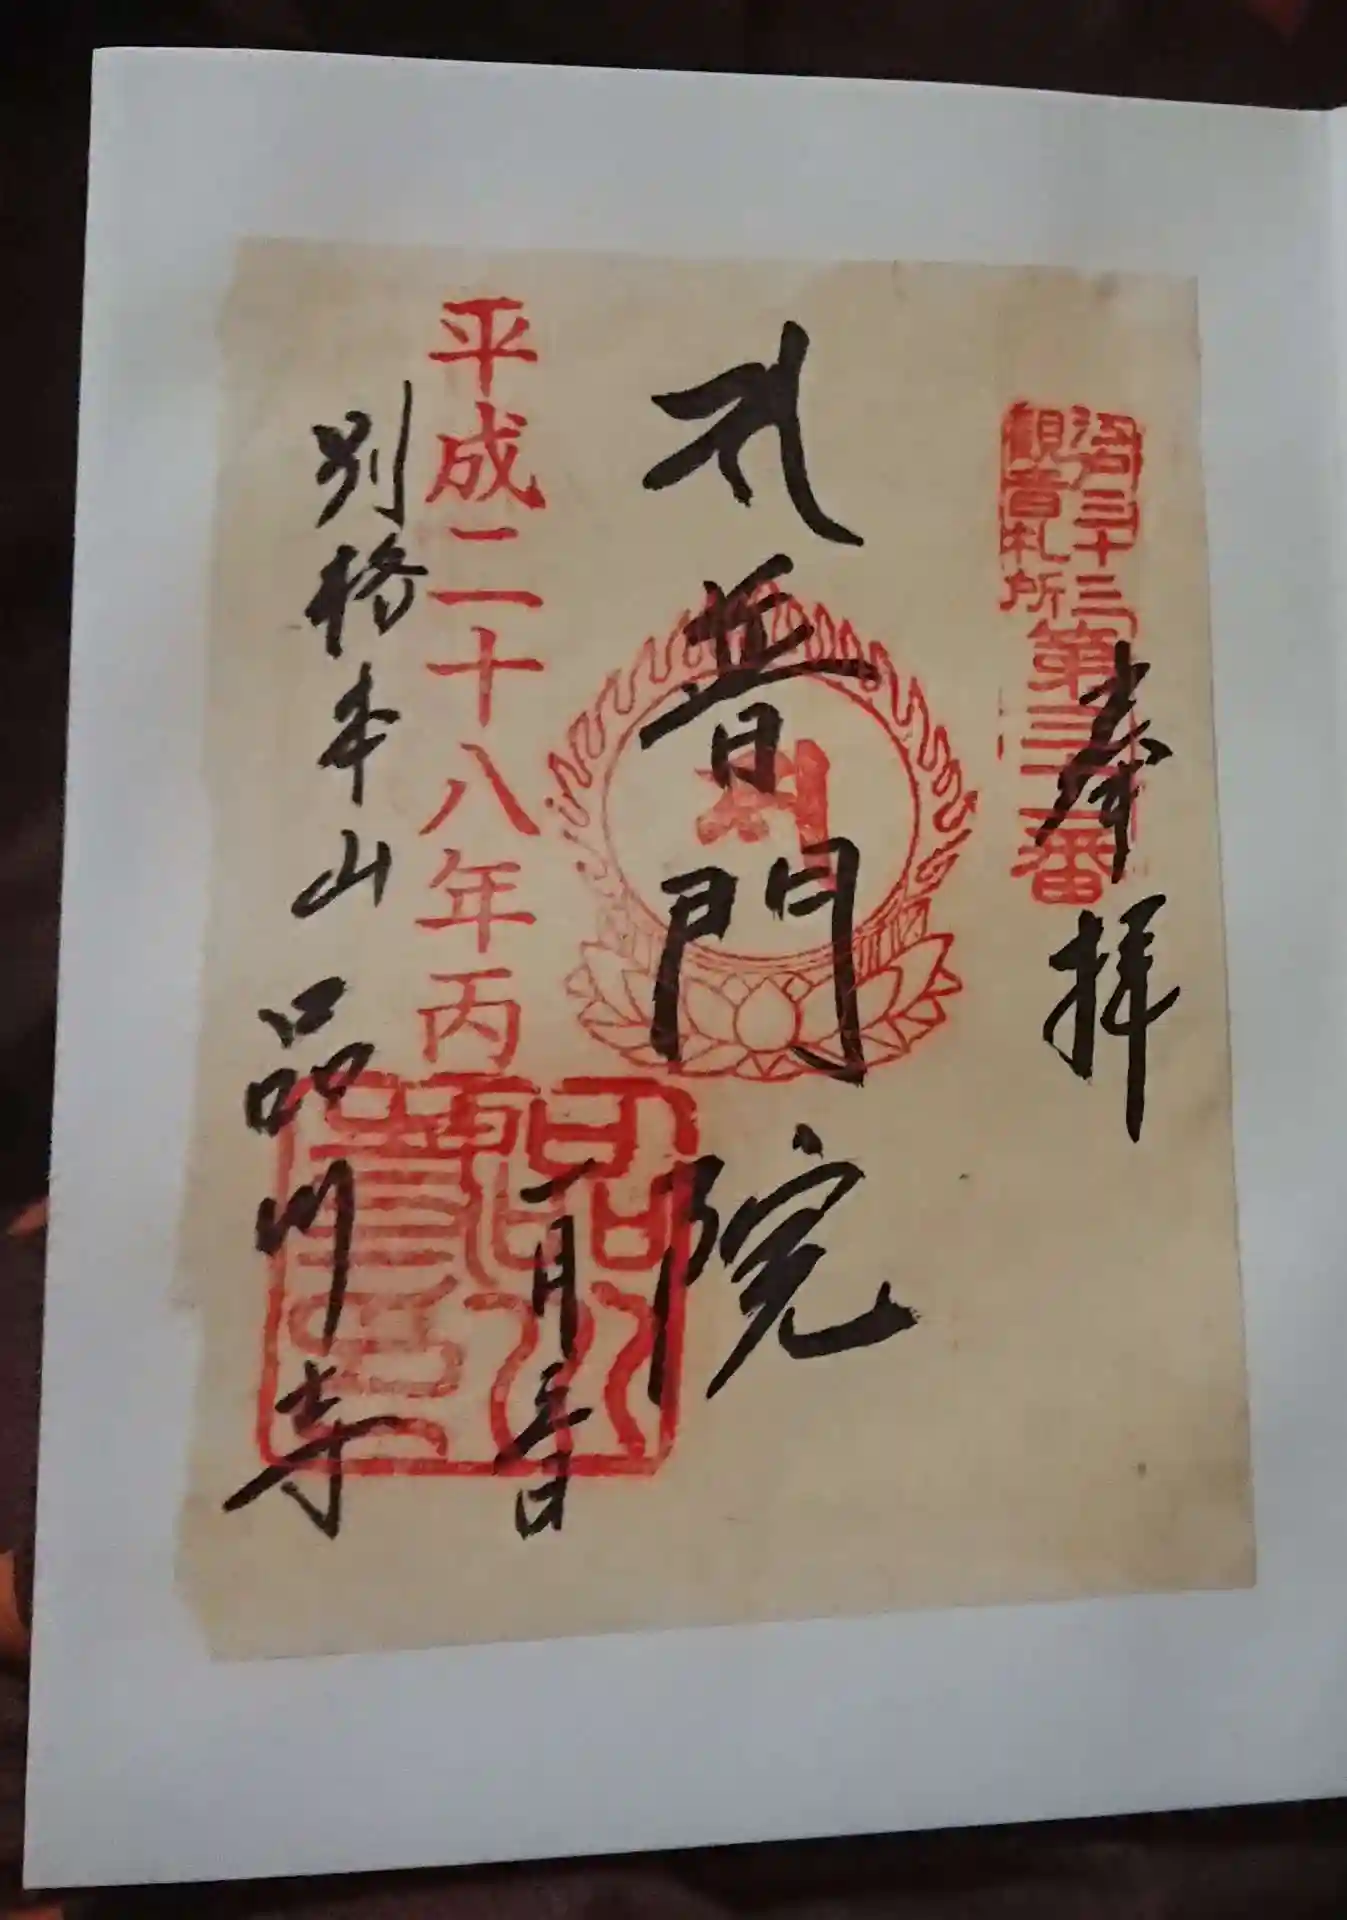 江戸三十三
観音札所
第三十一番
奉拝
普門院
平成二十八年丙申
一月
別格本山 品川寺